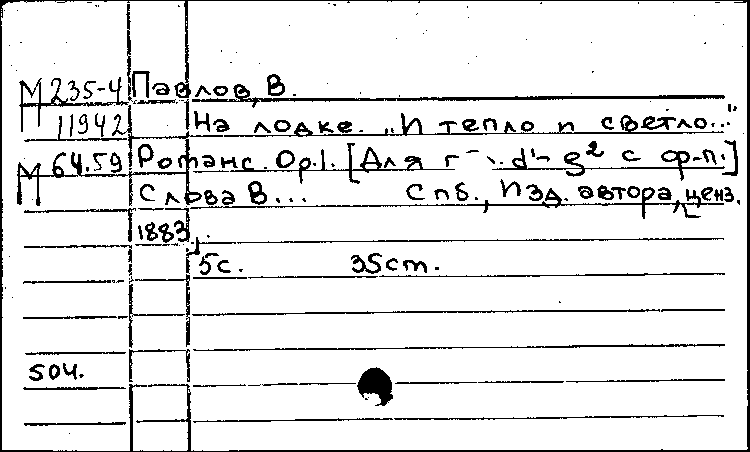 М 235-4 Павлов, В.
11942 На лодке. „И тепло и светло..."
М 64.59 Романс. Op.1. [Для г d¹- g² с ф-п.]
Слова В... Спб., Изд. автора, ценз.
1883.
5с. 35cm.
504.